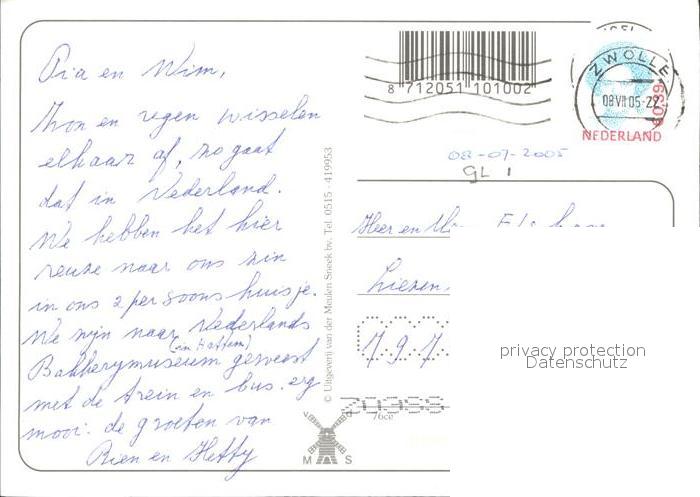 Pia en Wim,
Zon en regen wisselen
elkaar af, zo gaat
dat in Nederland.
We hebben het hier
reuze naar ons zin
in ons 2 persoons huisje.
We zijn naar Nederlands
(in Hattem)
Bakkerymuseum geweest
met de trein en bus. erg
mooi. de groeten van
Rien en Hetty
© Uitgeverij van der Meulen Sneek bv. Tel. 0515 - 419953
M S
8 712051 101002
ZWOLLE
08 VII 05-22
0,39
NEDERLAND
08-07-2005
GL 1
Heer en
797
76ce
privacy protection
Datenschutz